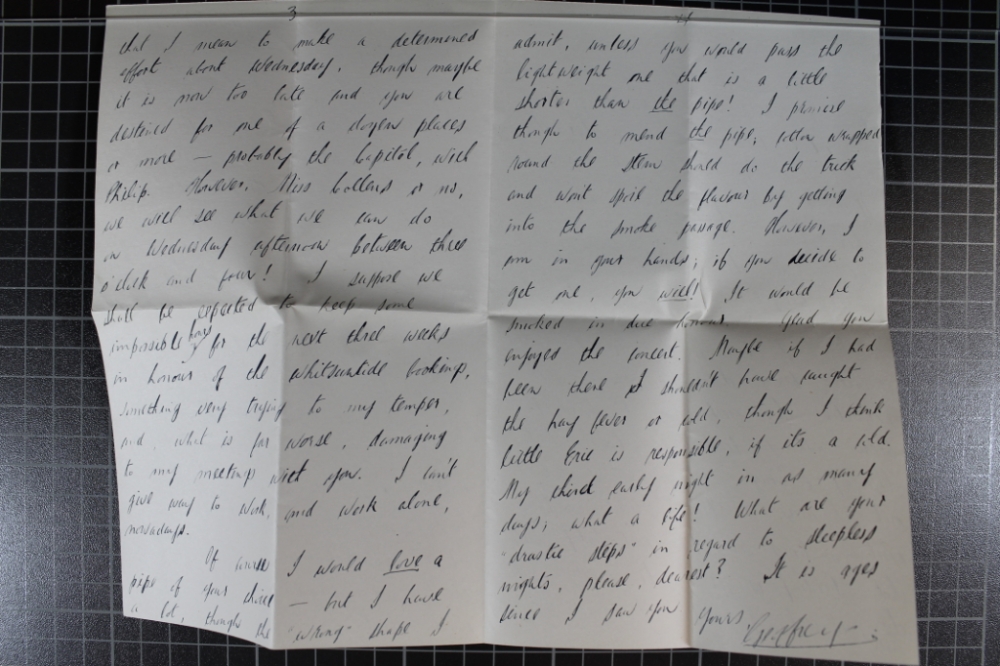 3
that I mean to make a determined
effort about Wednesday, though maybe
it is now too late and you are
destined for one of a dozen places
or more – probably the Capitol, with
Philip. However, Miss Collens or no,
we will see what we can do
on Wednesday afternoon between three
o'clock and four! I suppose we
shall be expected to keep some
impossible hours for the next three weeks
in honour of the Whitsuntide bookings,
something very trying to my temper,
and, what is far worse, damaging
to my meetings with you. I can't
give way to work, and work alone,
nowadays.
Of course I would love a
pipe of your choice – but I have
a lot, though the "wrong" shape I
4
admit, unless you would pass the
lightweight one that is a little
shorter than the pipe! I promise
though to mend the pipe; cotton wrapped
round the stem should do the trick
and won't spoil the flavour by getting
into the smoke passage. However, I
am in your hands; if you decide to
get one, you will! It would be
smoked in due honour. Glad you
enjoyed the concert. Maybe if I had
been there I shouldn't have caught
the hay fever or cold, though I think
little Eric is responsible, if it's a cold.
My third early night in as many
days; what a life! What are your
"drastic steps" in regard to sleepless
nights, please, dearest? It is ages
since I saw you
Yours,
Geoffrey